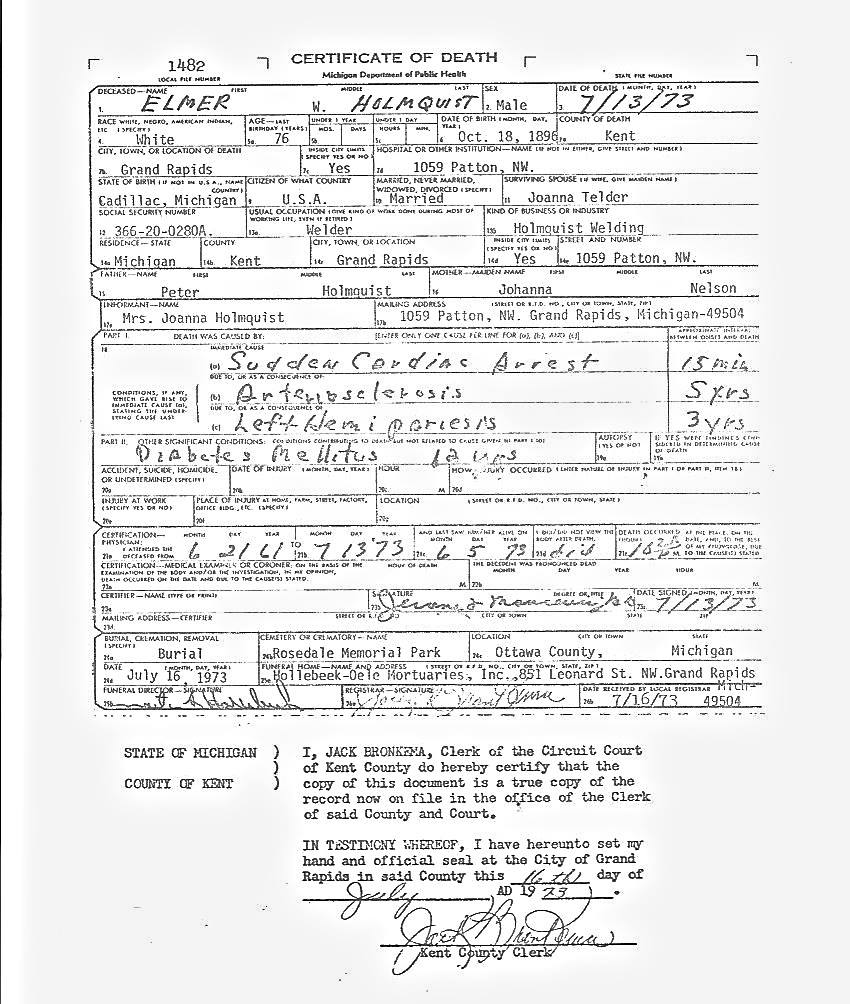 1482
CERTIFICATE OF DEATH
LOCAL FILE NUMBER
Michigan Department of Public Health
STATE FILE NUMBER
DECEASED—NAME FIRST MIDDLE LAST SEX DATE OF DEATH (MONTH, DAY, YEAR)
1. ELMER W. HOLMQUIST 2. Male 3. 7/13/73
RACE WHITE, NEGRO, AMERICAN INDIAN, ETC. (SPECIFY) AGE—LAST BIRTHDAY (YEARS) UNDER 1 YEAR MOS. DAYS UNDER 1 DAY HOURS MIN. DATE OF BIRTH (MONTH, DAY, YEAR) COUNTY OF DEATH
4. White 5a. 76 5b. 5c. 6. Oct. 18, 1896 7a. Kent
CITY, TOWN, OR LOCATION OF DEATH INSIDE CITY LIMITS (SPECIFY YES OR NO) HOSPITAL OR OTHER INSTITUTION—NAME (IF NOT IN EITHER, GIVE STREET AND NUMBER)
7b. Grand Rapids 7c. Yes 7d. 1059 Patton, NW.
STATE OF BIRTH (IF NOT IN U.S.A., NAME COUNTRY) CITIZEN OF WHAT COUNTRY MARRIED, NEVER MARRIED, WIDOWED, DIVORCED (SPECIFY) SURVIVING SPOUSE (IF WIFE, GIVE MAIDEN NAME)
Cadillac, Michigan 9. U.S.A. 10. Married 11. Joanna Telder
SOCIAL SECURITY NUMBER USUAL OCCUPATION (GIVE KIND OF WORK DONE DURING MOST OF WORKING LIFE, EVEN IF RETIRED) KIND OF BUSINESS OR INDUSTRY
12. 366-20-0280A. 13a. Welder 13b. Holmquist Welding
RESIDENCE—STATE COUNTY CITY, TOWN, OR LOCATION INSIDE CITY LIMITS (SPECIFY YES OR NO) STREET AND NUMBER
14a. Michigan 14b. Kent 14c. Grand Rapids 14d. Yes 14e. 1059 Patton, NW.
FATHER—NAME FIRST MIDDLE LAST MOTHER—MAIDEN NAME FIRST MIDDLE LAST
15. Peter Holmquist 16. Johanna Nelson
INFORMANT—NAME MAILING ADDRESS (STREET OR R.F.D. NO., CITY OR TOWN, STATE, ZIP)
17a. Mrs. Joanna Holmquist 17b. 1059 Patton, NW. Grand Rapids, Michigan-49504
PART I. DEATH WAS CAUSED BY: [ENTER ONLY ONE CAUSE PER LINE FOR (a), (b), AND (c)] APPROXIMATE INTERVAL BETWEEN ONSET AND DEATH
18. IMMEDIATE CAUSE
(a) Sudden Cardiac Arrest 15 min
DUE TO, OR AS A CONSEQUENCE OF
CONDITIONS, IF ANY, WHICH GAVE RISE TO IMMEDIATE CAUSE (a), STATING THE UNDERLYING CAUSE LAST
(b) Arteriosclerosis 5 yrs
DUE TO, OR AS A CONSEQUENCE OF
(c) Left Hemi pariesis 3 yrs
PART II. OTHER SIGNIFICANT CONDITIONS: CONDITIONS CONTRIBUTING TO DEATH BUT NOT RELATED TO CAUSE GIVEN IN PART I (a) AUTOPSY (YES OR NO) IF YES WERE FINDINGS CONSIDERED IN DETERMINING CAUSE OF DEATH
Diabetes Mellitus 12 yrs 19a. 19b.
ACCIDENT, SUICIDE, HOMICIDE, OR UNDETERMINED (SPECIFY) DATE OF INJURY (MONTH, DAY, YEAR) HOUR HOW INJURY OCCURRED (ENTER NATURE OF INJURY IN PART I OR PART II, ITEM 18)
20a. 20b. 20c. M. 20d.
INJURY AT WORK (SPECIFY YES OR NO) PLACE OF INJURY AT HOME, FARM, STREET, FACTORY, OFFICE BLDG., ETC. (SPECIFY) LOCATION (STREET OR R.F.D. NO., CITY OR TOWN, STATE)
20e. 20f. 20g.
CERTIFICATION— MONTH DAY YEAR MONTH DAY YEAR AND LAST SAW HIM/HER ALIVE ON MONTH DAY YEAR I DID/DID NOT VIEW THE BODY AFTER DEATH. DEATH OCCURRED AT THE PLACE, ON THE DATE, AND, TO THE BEST OF MY KNOWLEDGE, DUE TO THE CAUSE(S) STATED
PHYSICIAN: I ATTENDED THE DECEASED FROM
21a. 6 21 61 TO 21b. 7 13 73 21c. 6 5 73 21d. did 21e. M.
CERTIFICATION—MEDICAL EXAMINER OR CORONER: ON THE BASIS OF THE EXAMINATION OF THE BODY AND/OR THE INVESTIGATION, IN MY OPINION, DEATH OCCURRED ON THE DATE AND DUE TO THE CAUSE(S) STATED. HOUR OF DEATH THE DECEDENT WAS PRONOUNCED DEAD MONTH DAY YEAR HOUR
22a. M. 22b. M.
CERTIFIER—NAME (TYPE OR PRINT) SIGNATURE DEGREE OR TITLE DATE SIGNED (MONTH, DAY, YEAR)
23a. 23b. 23c. 7/13/73
MAILING ADDRESS—CERTIFIER STREET OR R.F.D. NO. CITY OR TOWN STATE ZIP
23d.
BURIAL, CREMATION, REMOVAL (SPECIFY) CEMETERY OR CREMATORY—NAME LOCATION CITY OR TOWN STATE
24a. Burial 24b. Rosedale Memorial Park 24c. Ottawa County, Michigan
DATE (MONTH, DAY, YEAR) FUNERAL HOME—NAME AND ADDRESS (STREET OR R.F.D. NO., CITY OR TOWN, STATE, ZIP)
24d. July 16, 1973 25a. Hollebeek-Oele Mortuaries, Inc.,851 Leonard St. NW.Grand Rapids
FUNERAL DIRECTOR—SIGNATURE REGISTRAR—SIGNATURE DATE RECEIVED BY LOCAL REGISTRAR Mich-
25b. 26a. 26b. 7/16/73 49504
STATE OF MICHIGAN ) I, JACK BRONKEMA, Clerk of the Circuit Court
) of Kent County do hereby certify that the
COUNTY OF KENT ) copy of this document is a true copy of the
record now on file in the office of the Clerk
of said County and Court.
IN TESTIMONY WHEREOF, I have hereunto set my
hand and official seal at the City of Grand
Rapids in said County this 16th day of
July, AD 1973.
Jack Bronkema
Kent County Clerk